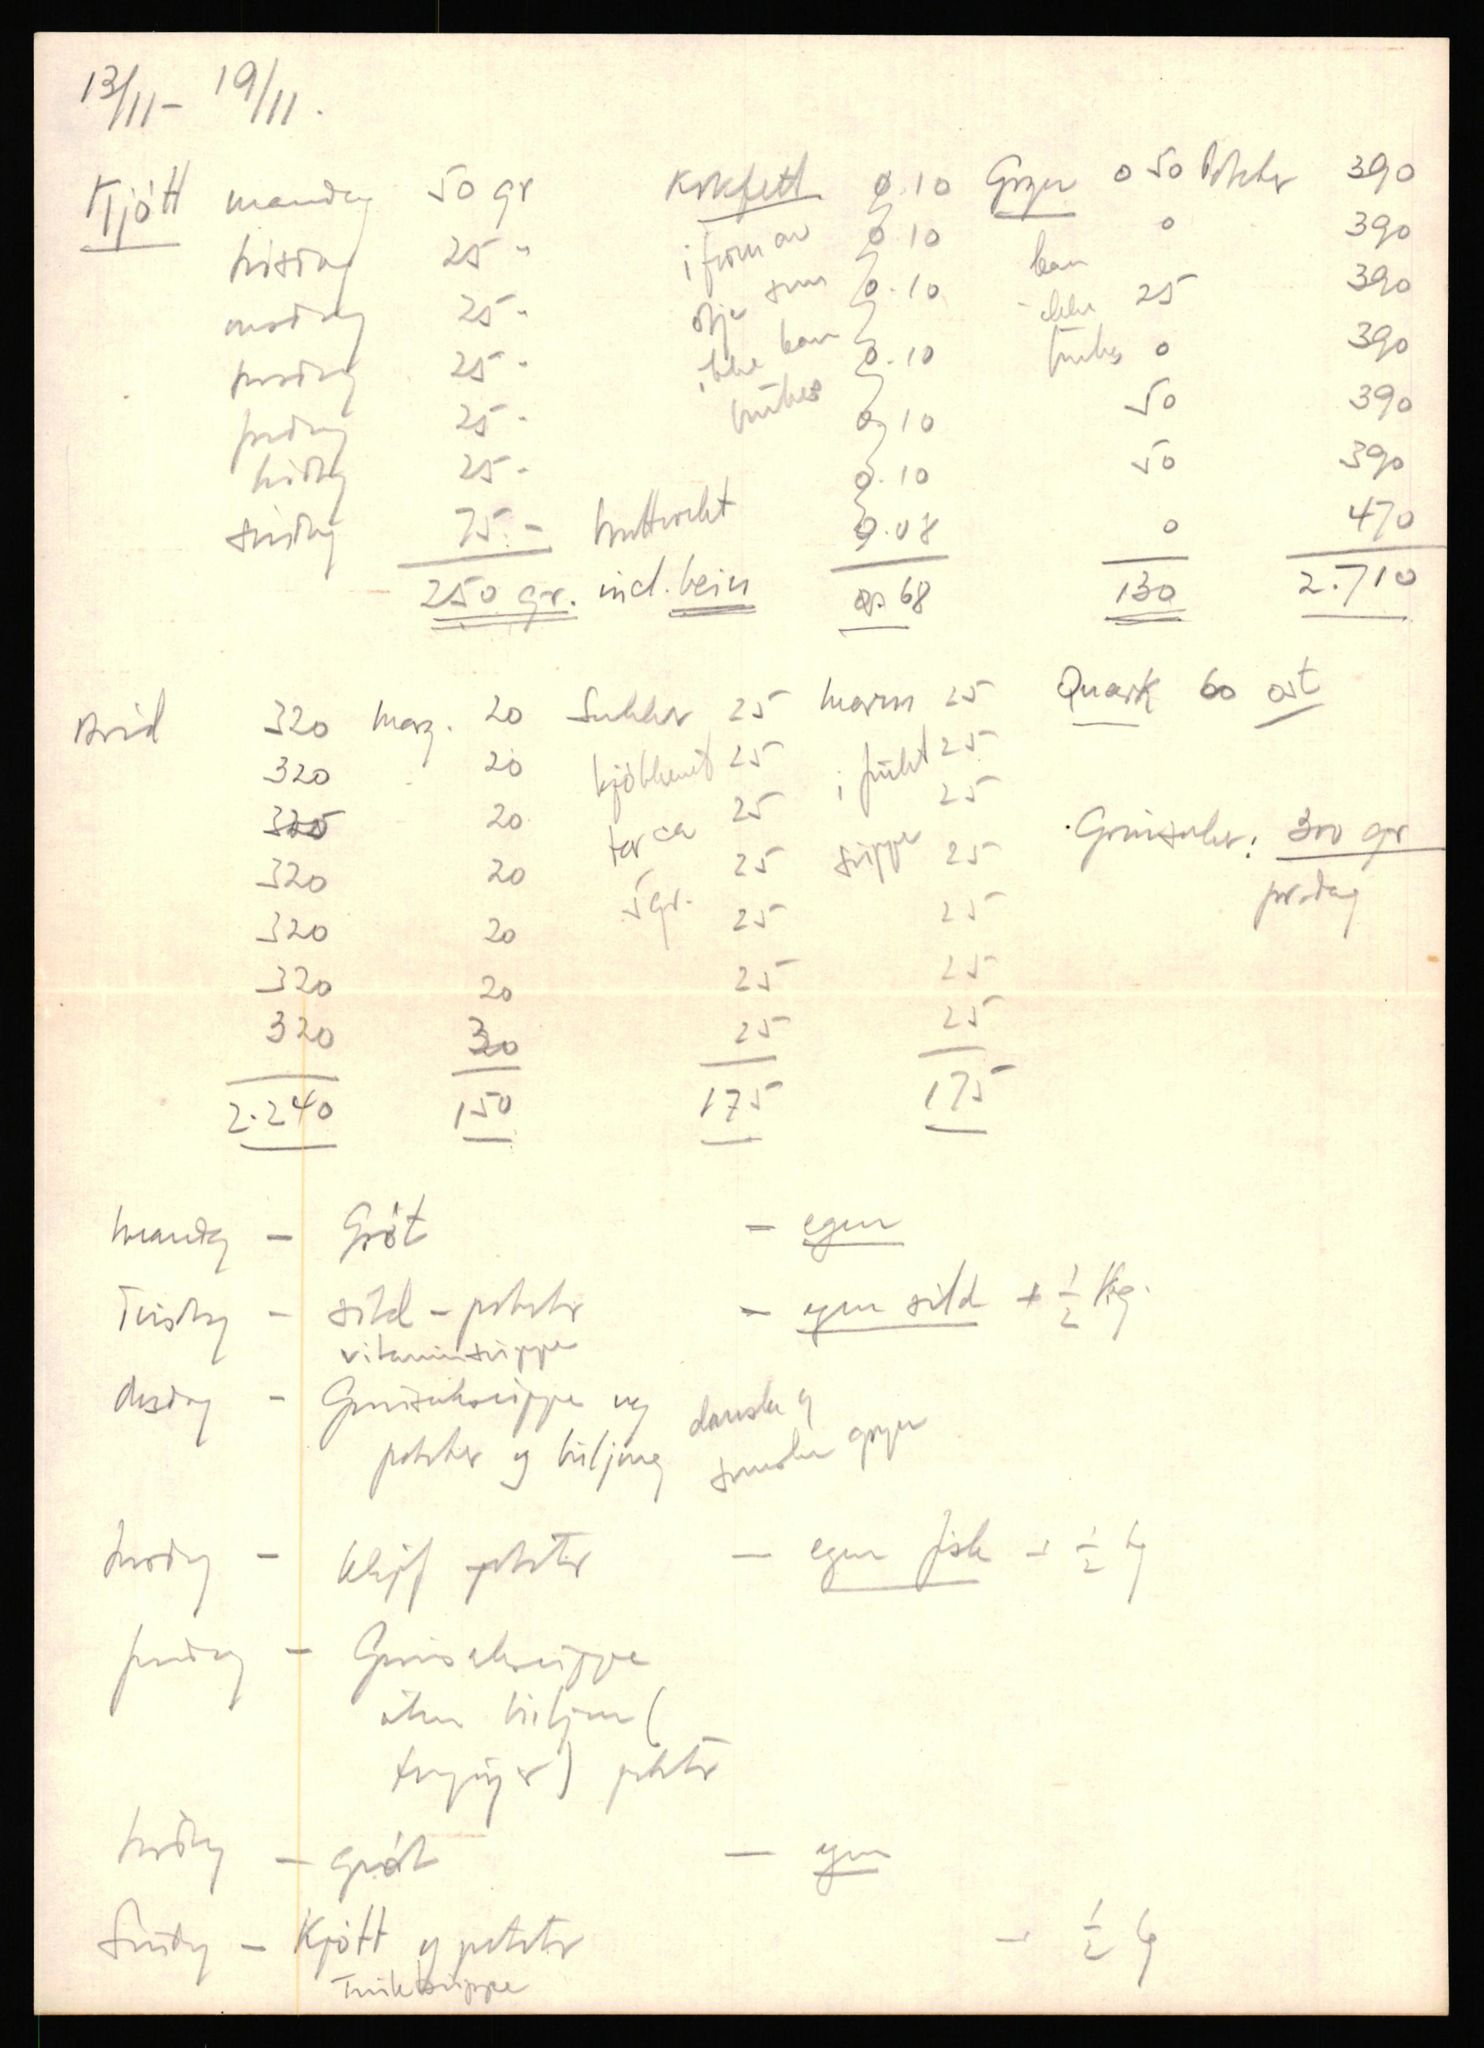 13/11 - 19/11.
Kjött mandag 50 gr Kokfett 0.10 Gryn 0 50 Poteter 390
tirsdag 25 " i form av 0.10 0 390
onsdag 25 - olje som 0.10 kan ikke 25 390
torsdag 25 - ikke kan 0.10 brukes 0 390
fredag 25 - brukes 0.10 50 390
lördag 25 - 0.10 50 390
söndag 75 - bruttovekt 0.08 0 470
250 gr. incl. bein 0.68 130 2.710
Bröd 320 marg. 20 Sukker 25 marm 25 Quark 60 ost
320 20 kjökkenet 25 i frukt 25
320 20 tar ca 25 suppe 25 Grönsaker: 300 gr
320 20 5 gr. 25 25 pr. dag
320 20 25 25
320 20 25 25
320 30 25 25
2.240 150 175 175
mandag - Gröt - egen
Tirsdag - sild - poteter - egen sild + 1/2 kg.
vitaminsuppe
Onsdag - Grönsaksuppe og danske og
poteter og svenske gryn
torsdag - klipf poteter - egen fisk - 1/2 kg
fredag - Grönsaksuppe
uten
poteter
lördag - gröt - egen
Söndag - Kjött og poteter - 1/2 kg
Fruktsuppe